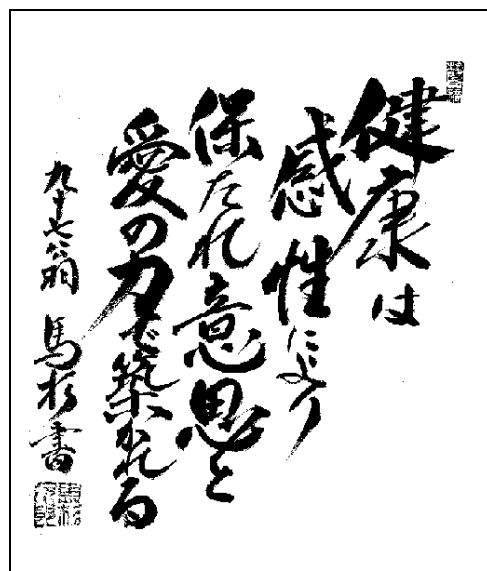 健康は
感性により
保たれ意思と
愛の力で築かれる
九十七翁 馬杉書